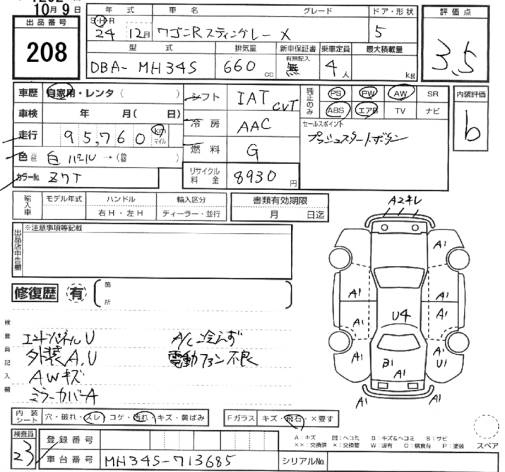 10月9日
年式 車名 グレード ドア・形状 評価点
出品番号 S・H・R 24 12月 ワゴンRスティングレー X 5 3.5
208
型式 排気量 新車保証書 乗車定員 最大積載量
DBA- MH34S 660cc 有無記入 無 4人 kg
車歴 自家用・レンタ( ) シフト IAT CVT 残さのみ PS PW AW SR 内装評価
車検 年 月( 日) 冷房 AAC ABS エアB TV ナビ b
走行 95,760 km マイル 燃料 G セールスポイント
プッシュスタートボタン
色 白パール→( )
カラーNo. Z7T リサイクル料金 8930円
輸入車 モデル年式 ハンドル 輸入区分 書類有効期限
右H・左H ディーラー・並行 月 日迄
出品店申告欄 ※注意事項等記載
修復歴 有 箇所
検査員記入欄
エンドパネルU A/C冷えず
外装A,U 電動ファン不良
AWキズ
ミラーカバーA
A2キレ
A1 A1
A1 A1
A1 A1
U4
A1 B1 U1
A1 A1
内装シート 穴・破れ・スレ・コゲ・汚れ・キズ・黄ばみ Fガラス キズ・飛石・×要す
スペア
検査員 23 登録番号
車台番号 MH34S-713685 シリアルNo.